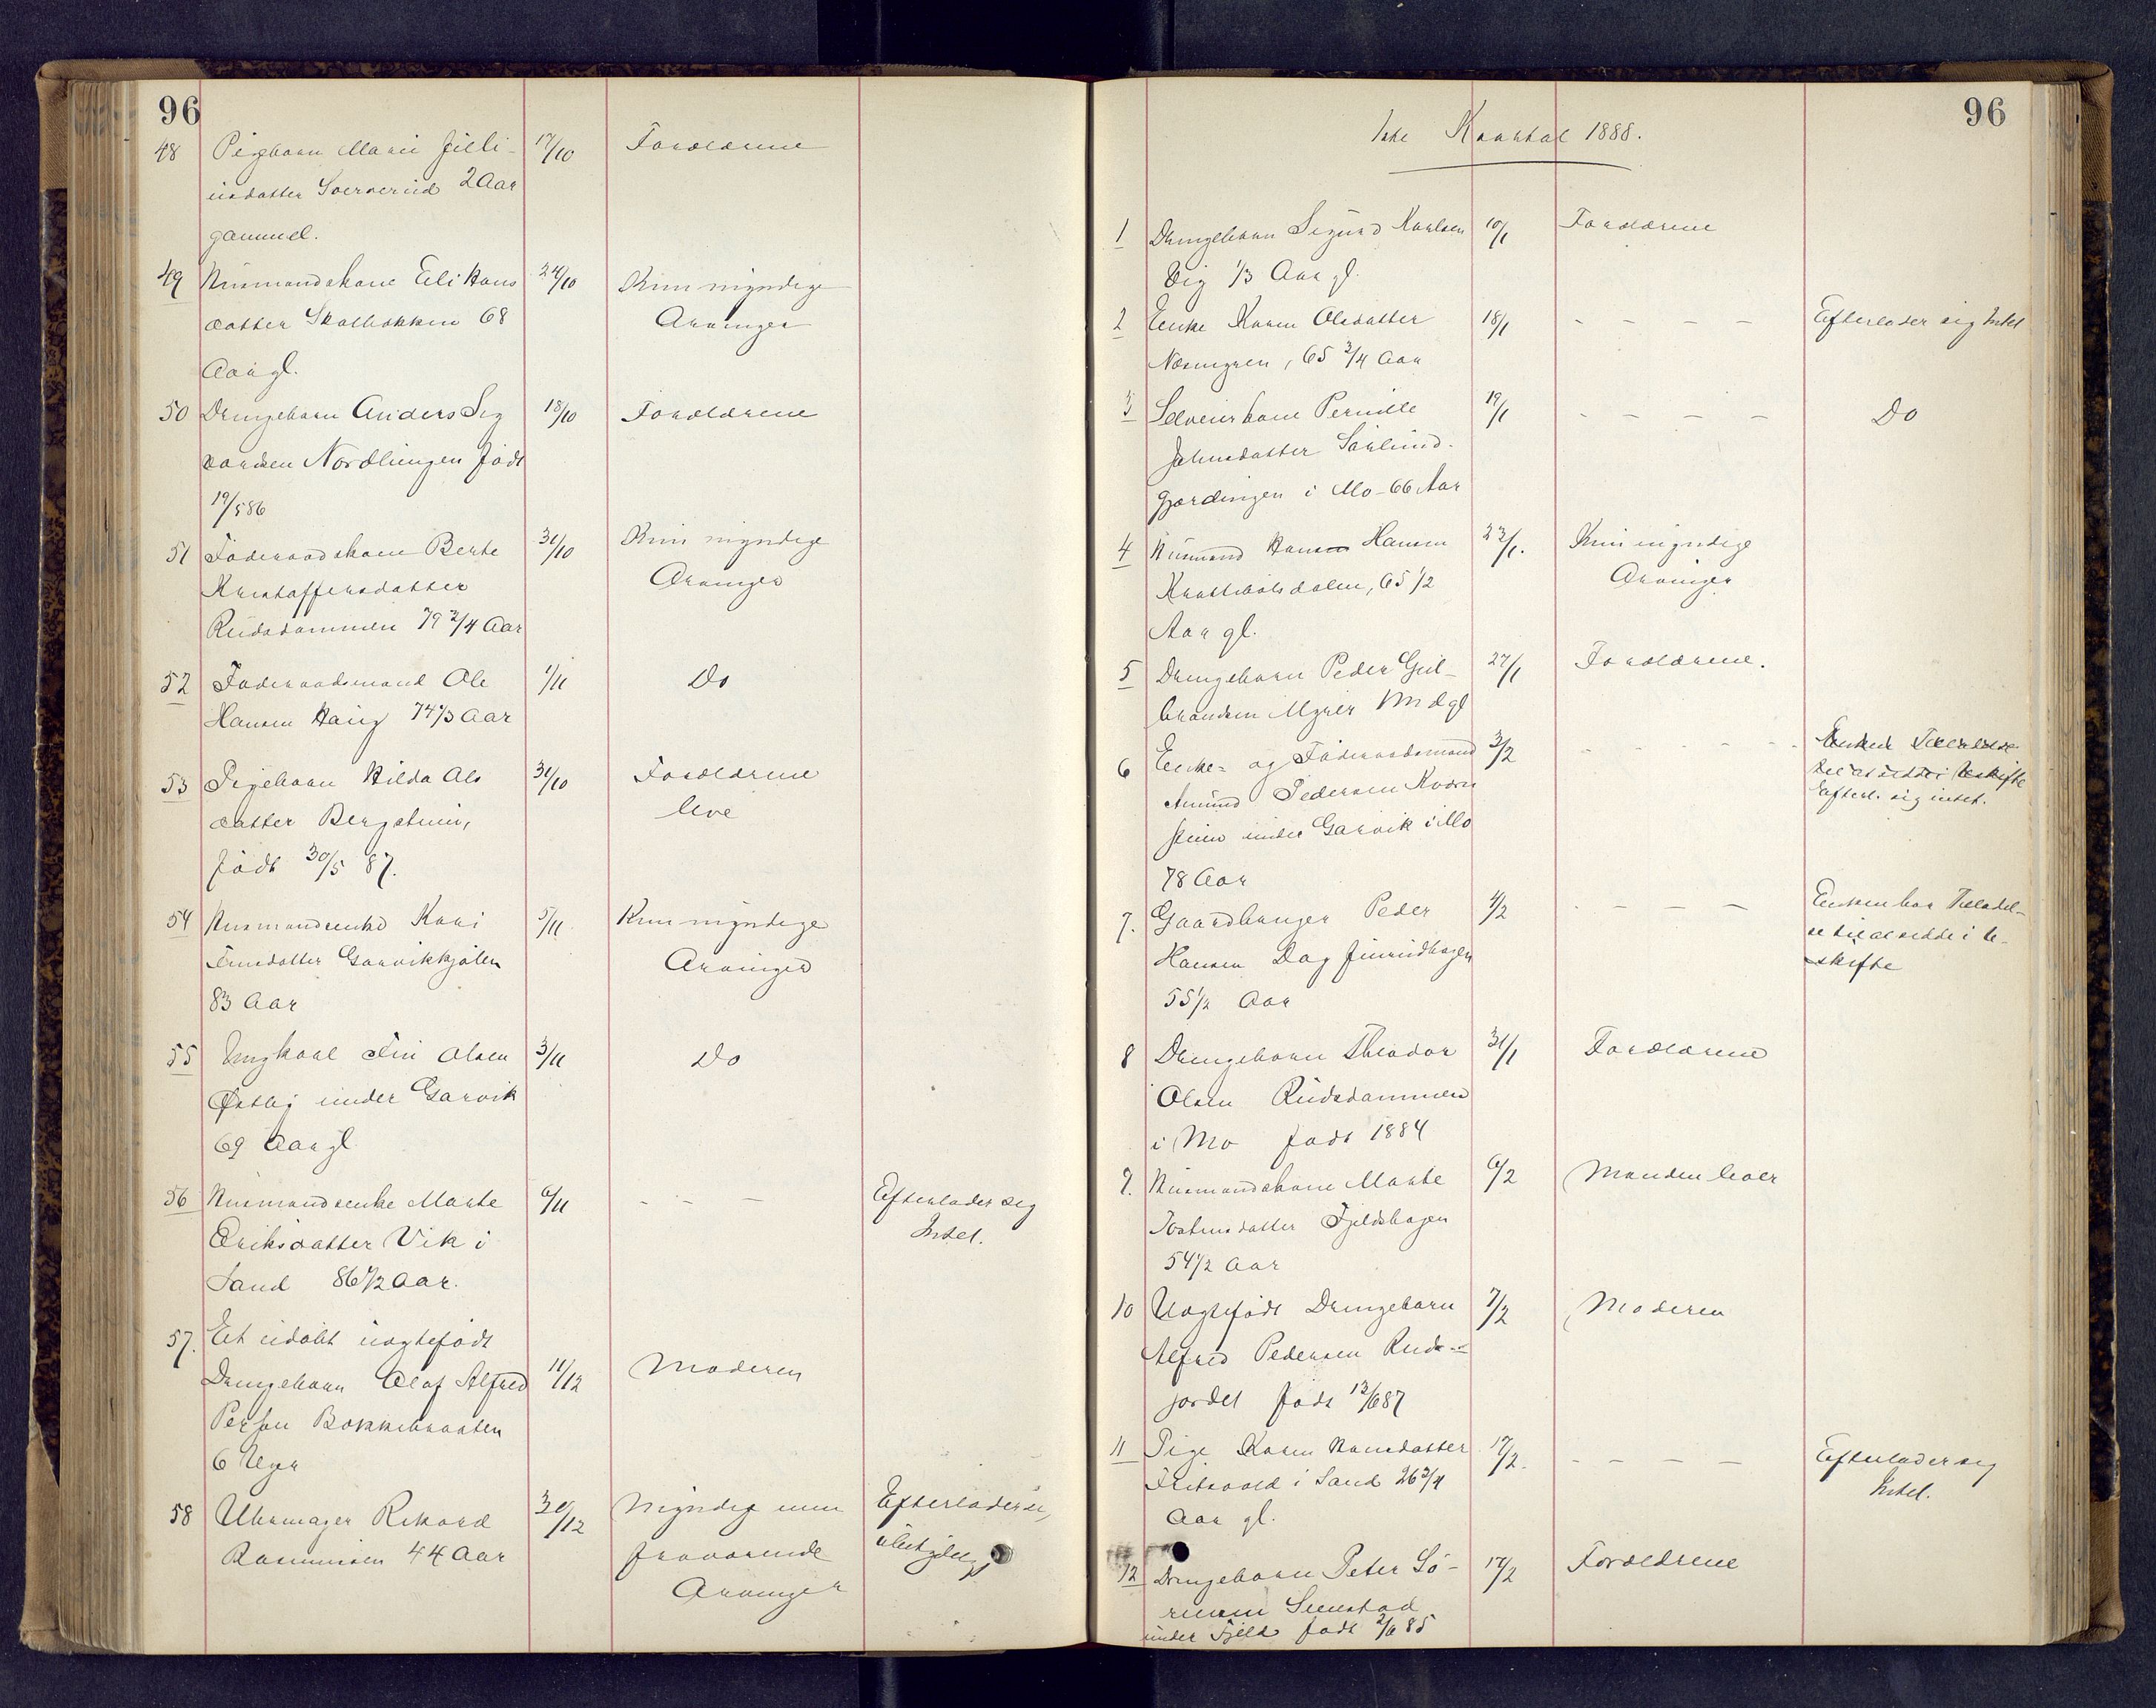 96
48 Pigebarn Marie Julli- 17/10 Forældrene
usdatter Sververud 2 Aar
gammel.
49 Husmandskone Eli Hans 24/10 Kun myndige
datter Skolbekken 68 Arvinger
Aar gl.
50 Drengebarn Anders Sig 18/10 Forældrene
vardsen Nordlungen født
19/5 86
51 Føderaadskone Berte 31/10 Kun myndige
Kristoffersdatter Arvinger
Rudsdammen 79 3/4 Aar
52 Føderaadsmand Ole 1/11 Do
Hansen Haug 74 1/3 Aar
53 Pigebarn Hilda Ols 31/10 Forældrene
datter Bergstuen, leve
født 30/5 87.
54 Husmandsenke Kari 5/11 Kun myndige
datter Garvikkjølen Arvinger
83 Aar
55 Ungkarl Olsen 3/11 Do
Østby under Garvik
69 Aar gl
56 Husmandsenke Marte 6/11 - - - Efterlader sig
Eriksdatter Vik i Intet.
Sand 86 1/2 Aar.
57. Et udøbt uægtefødt
Drengebarn Olaf Alfred 11/12 Moderen
Persen Bakkebraaten
6 Uger
58 Uhrmager Rikard 30/12 Myndig men Efterlader
Rasmussen 44 Aar fraværende
Arvinger
96
1ste Kvartal 1888.
1 Drengebarn Sigurd Karlsen 10/1 Forældrene
Vig 1/3 Aar gl.
2 Enke Karen Olsdatter 18/1 - - - - Efterlader sig Intet
65 3/4 Aar
3 Selveierkone Pernille 19/1 - - - - Do
Johnsdatter Sørlund-
Gjørdingen i Mo - 66 Aar
4 Husmand Hans Hansen 23/1. Kun myndige
65 1/2 Arvinger
Aar gl.
5 Drengebarn Peder Gul- 27/1 Forældrene.
brandsen Myrer Md gl
6 Enke- og Føderaadsmand 3/2 - - - - - Enken Tilladelse
Amund Pedersen Kværn til at sidde i Uskifte
stuen under Garvik i Mo Efterl. sig intet.
78 Aar
7. Gaardbruger Peder 4/2 - - - - Enken har Tilladel-
Hansen Dag se til at sidde i U-
55 1/2 Aar skifte
8 Drengebarn Theodor 31/1 Forældrene
Olsen Rudsdammen
i Mo født 1884
9. Husmandskone Marte 6/2 Manden lever
Tostensdatter Fjeldshagen
54 1/2 Aar
10 Uægtefødt Drengebarn 7/2 Moderen
Alfred Pedersen Ruds-
jordet født 13/6 87
11 Pige Karen Hansdatter 17/2. - - - - Efterlader sig
Fritsvold i Sand 26 3/4 Intet.
Aar gl.
12 Drengebarn Peter Sø- 17/2 Forældrene
rensen
under Fjeld født 2/6 85